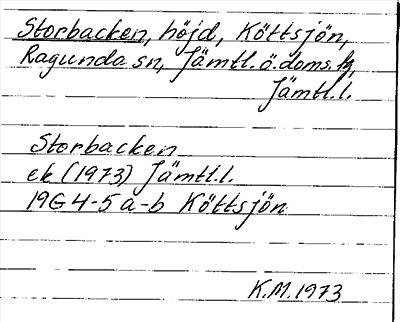 Storbacken, höjd, Köttsjön,
Ragunda sn, Jämtl. ö. doms. tg,
Jämtl. l.
Storbacken
ek (1973) Jämtl. l.
19G 4-5 a-b Köttsjön
K.M. 1973